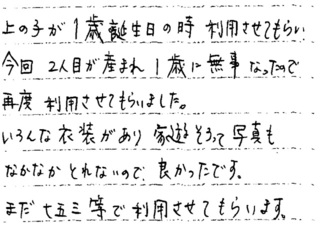 上の子が1歳誕生日の時 利用させてもらい
今回 2人目が産まれ 1歳に無事 なったので
再度 利用させてもらいました。
いろんな衣装があり 家遊そろって 写真も
なかなか とれないので 良かったです。
まだ 七五三 等で 利用させて もらいます。